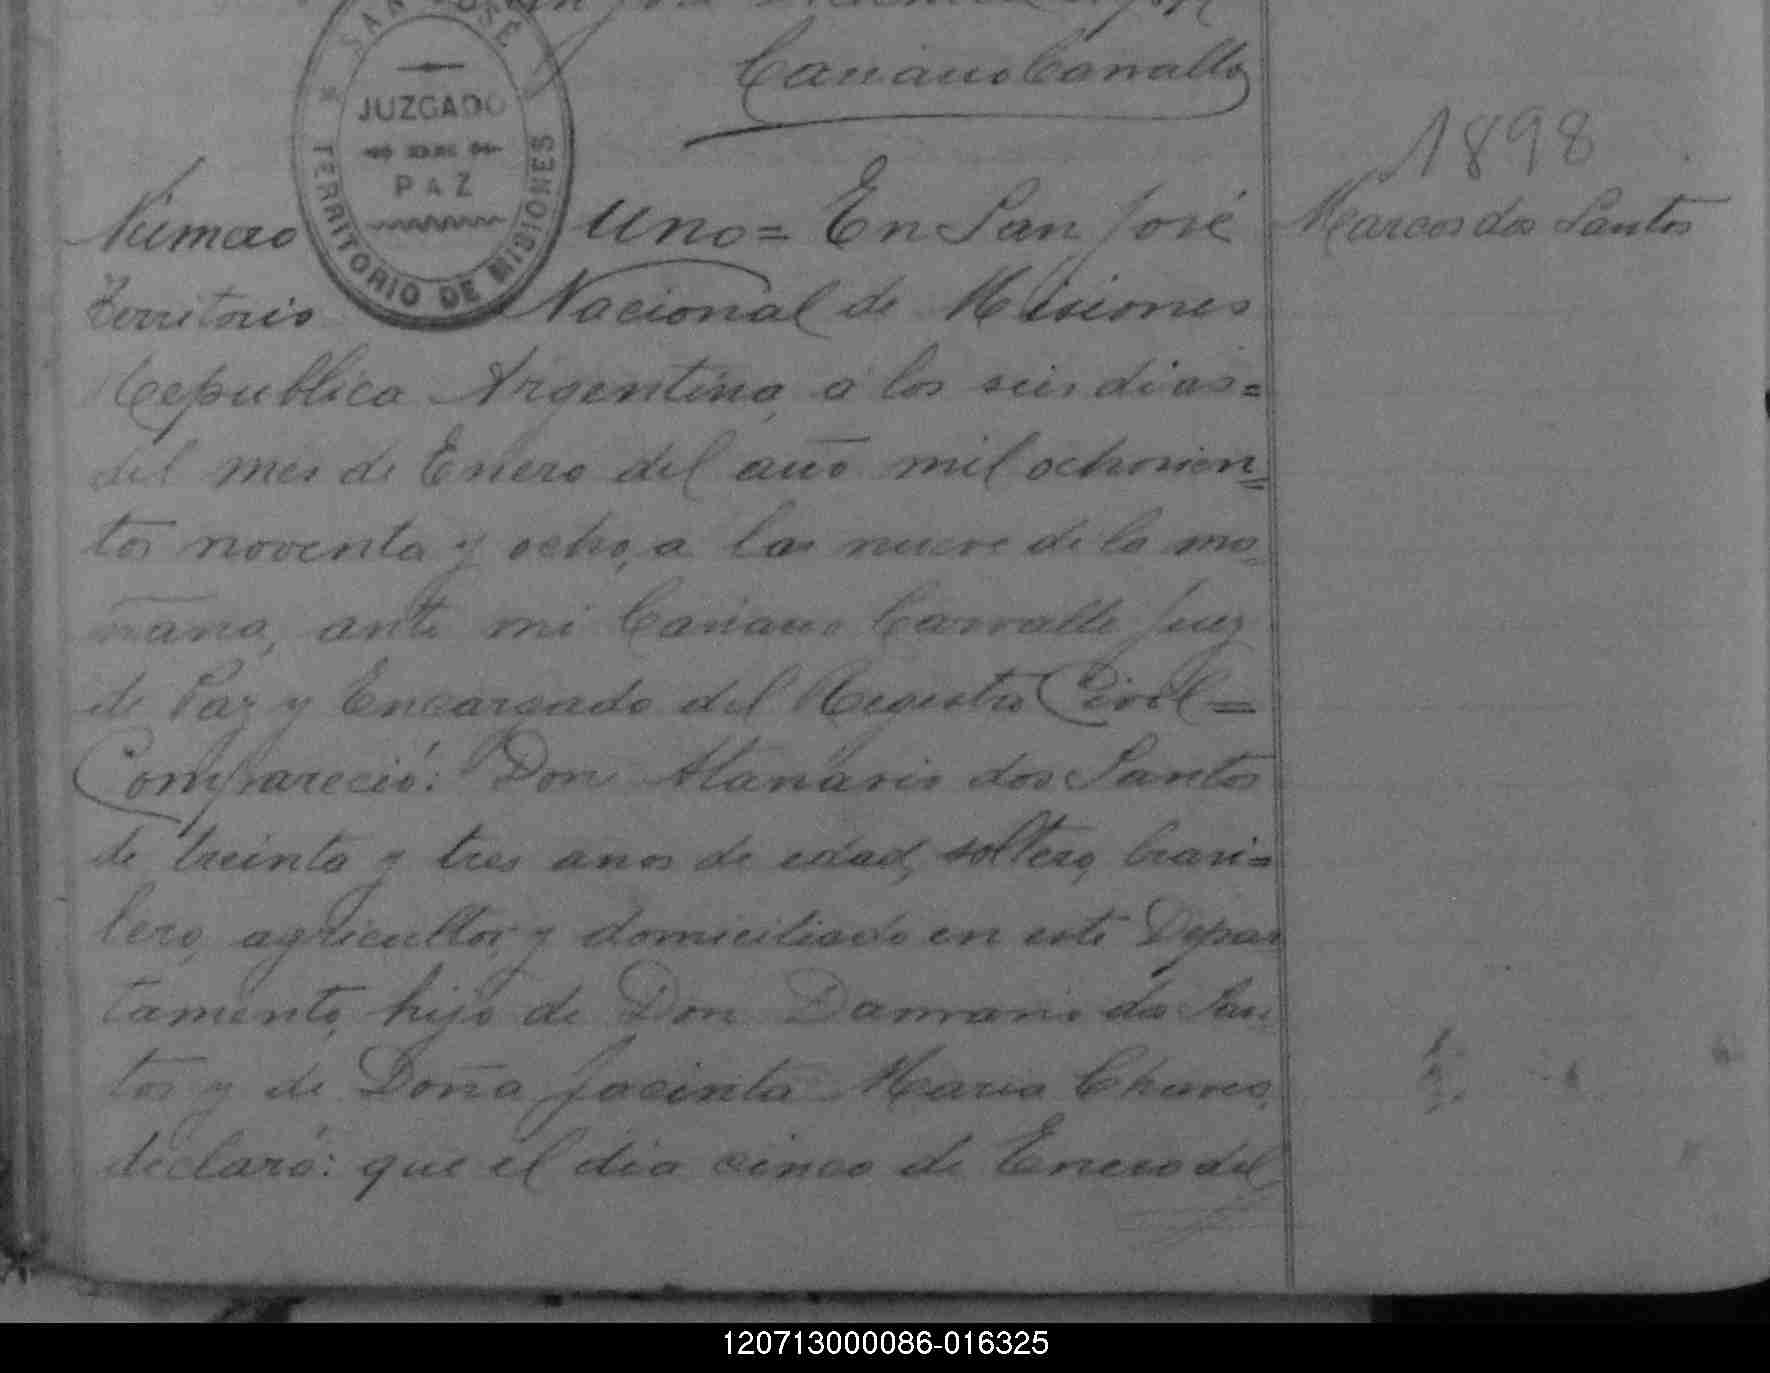 SAN JOSÉ
JUZGADO
DE
PAZ
TERRITORIO DE MISIONES
1898
Marcos dos Santos
Número uno = En San José
Territorio Nacional de Misiones
Republica Argentina, a los seis dias =
del mes de Enero del año mil ochocien=
tos noventa y ocho, a las nueve de la ma=
ñana, ante mi Carvallo Juez
de Paz y Encargado del Registro Civil =
Compareció: Don Atanasio dos Santos
de treinta y tres años de edad, soltero, brasi=
lero, agricultor, y domiciliado en este Depar
tamento, hijo de Don dos San
tos y de Doña Jacinta Maria Chaves,
declaró: que el dia cinco de Enero del
120713000086-016325